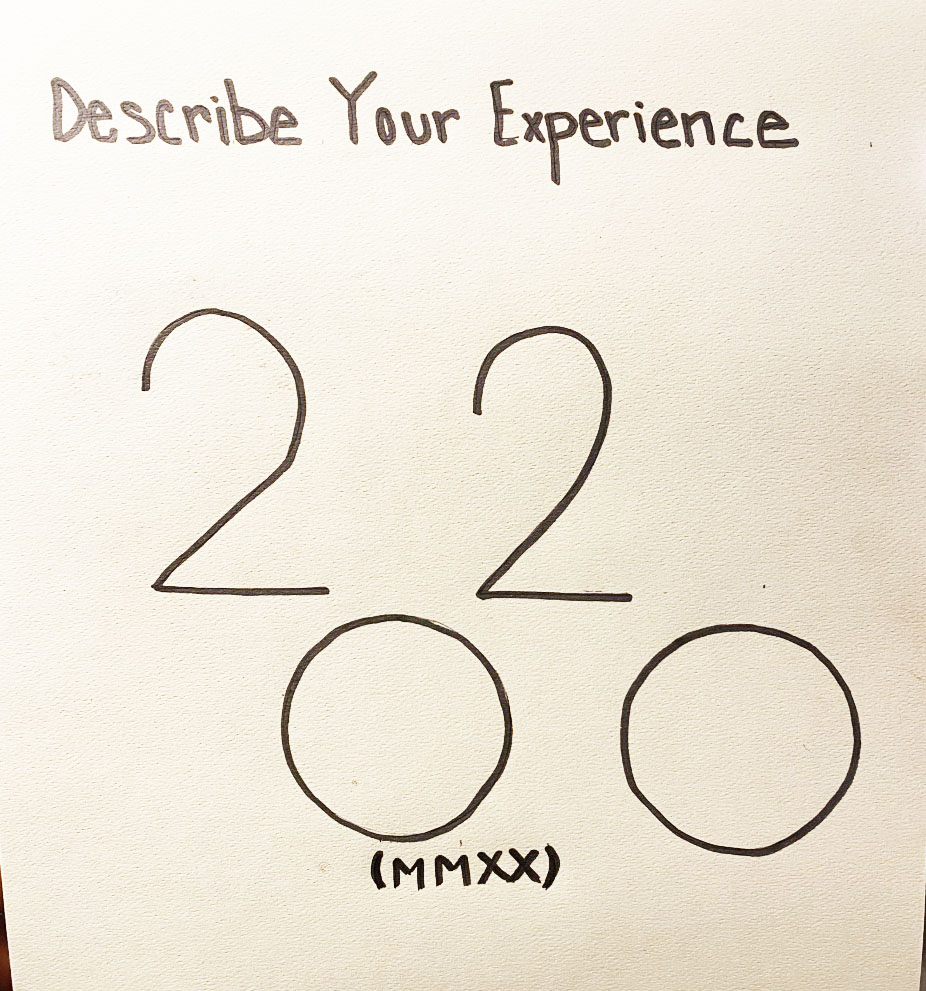 Describe Your Experience
2 2
0 0
(MMXX)